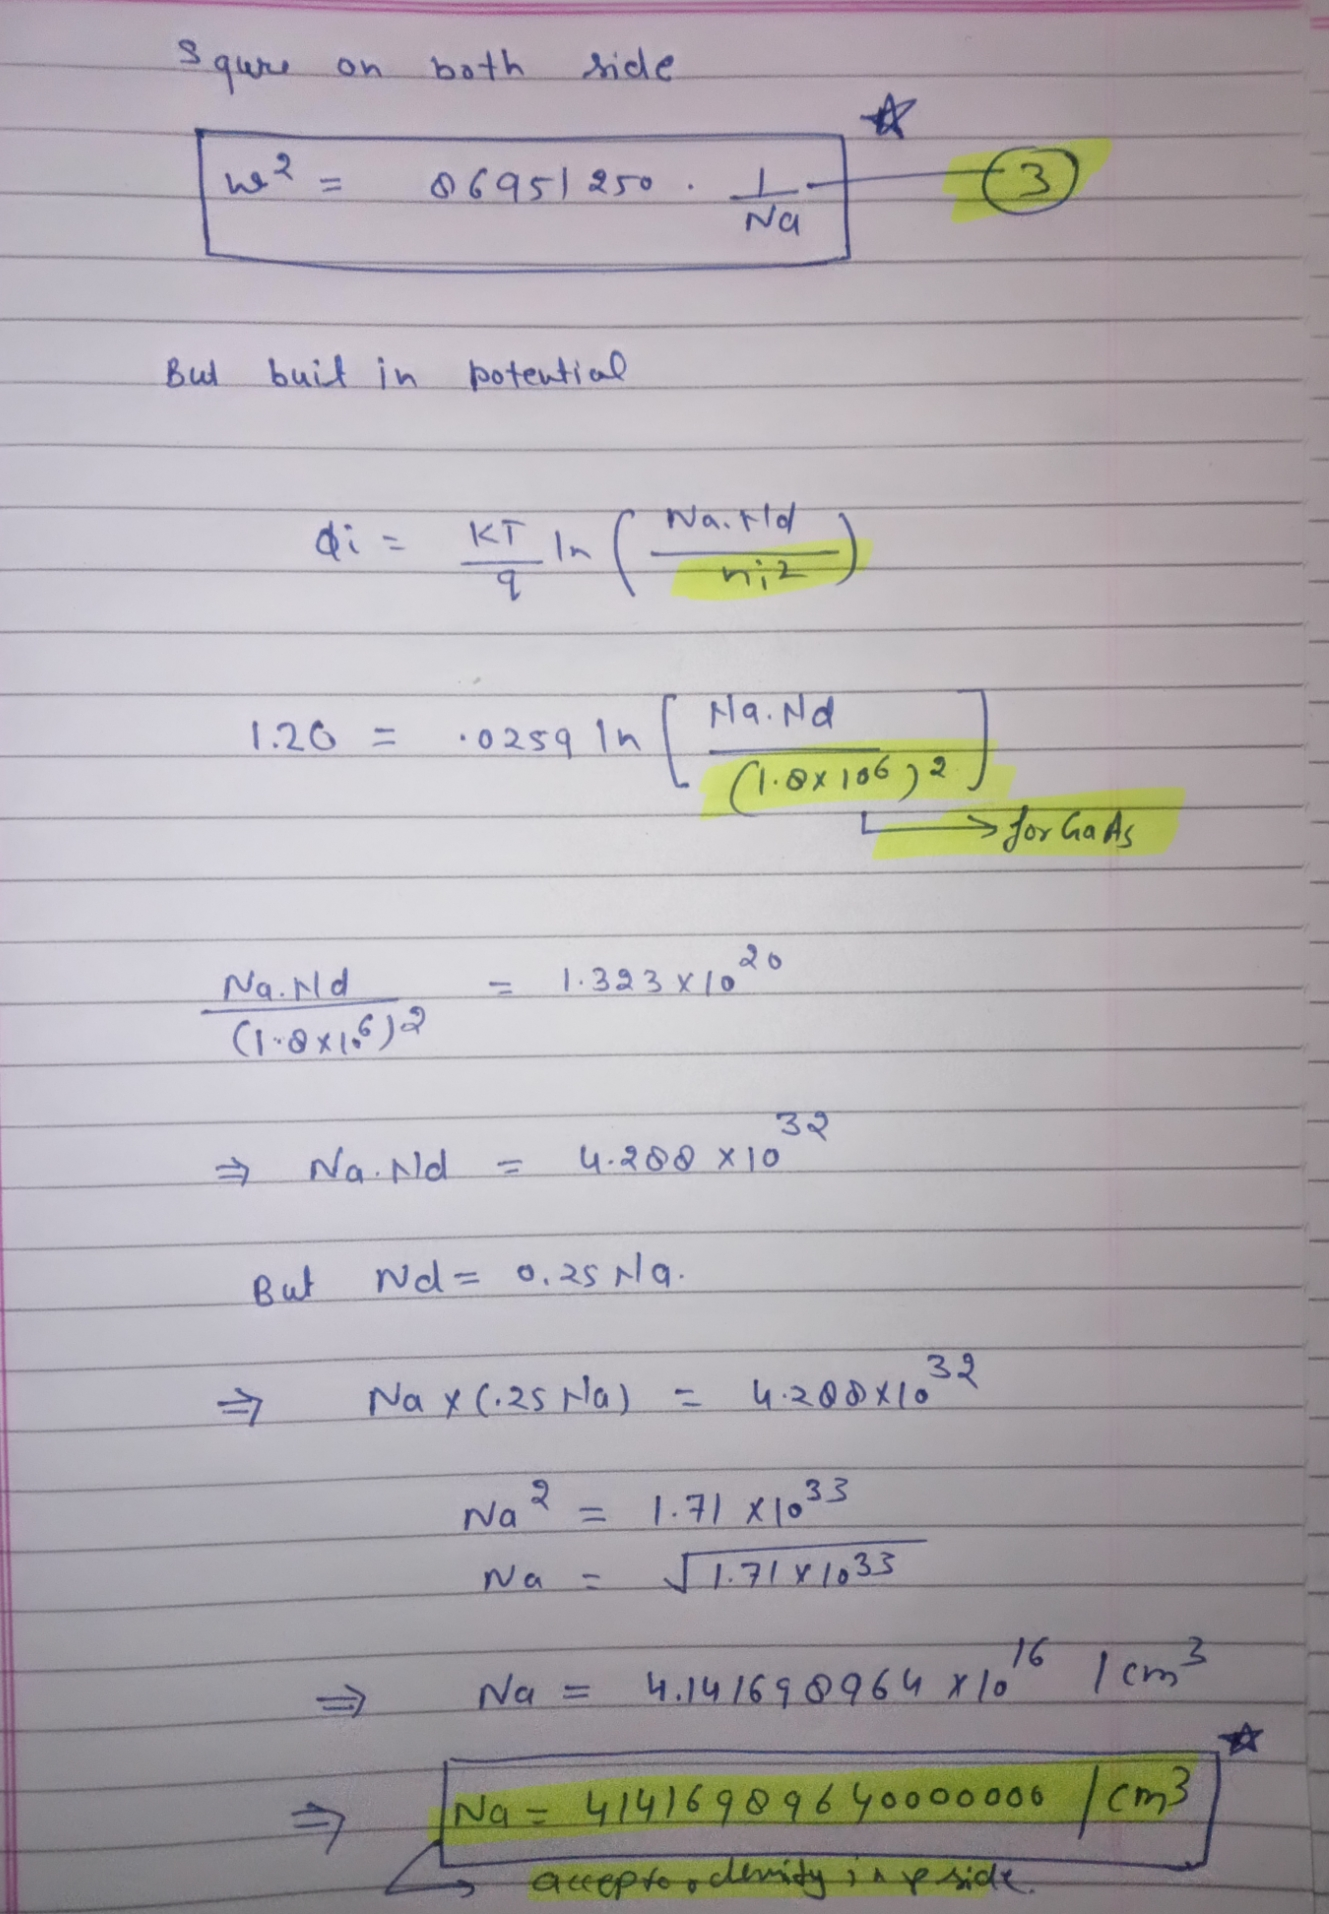 Squre on both side
w² = 86951250 . 1/Na — 3
But buit in potential
ϕi = KT/q ln ( Na.Nd / ni² )
1.20 = .0259 ln [ Na.Nd / (1.8×10⁶)² ]
→ for GaAs
Na.Nd / (1.8×10⁶)² = 1.323 × 10²⁰
⇒ Na.Nd = 4.288 × 10³²
But Nd = 0.25 Na.
⇒ Na × (.25 Na) = 4.288×10³²
Na² = 1.71 × 10³³
Na = √1.71 × 10³³
⇒ Na = 4.141698964 × 10¹⁶ / cm³
⇒ Na = 41416989640000000 / cm³
acceptor density in p side.